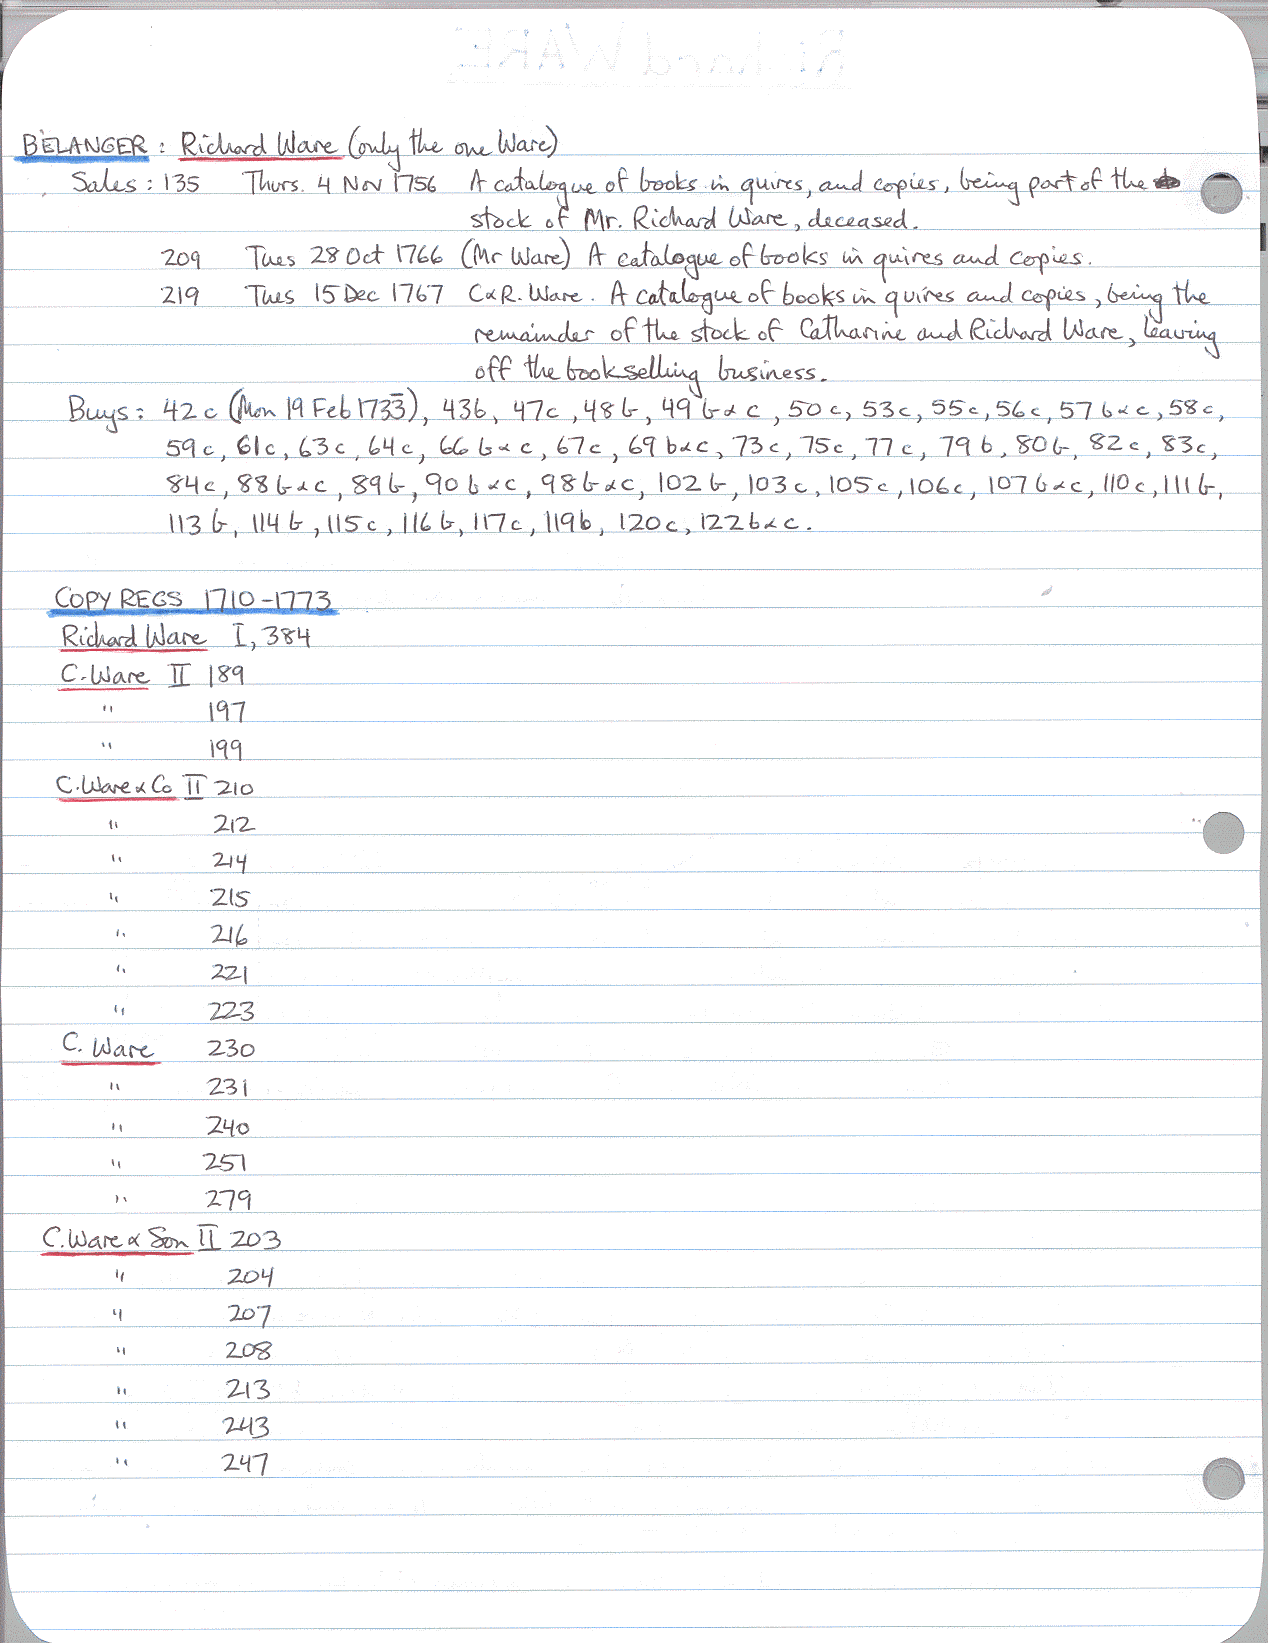 BELANGER : Richard Ware (only the one Ware)
Sales : 135 Thurs. 4 Nov 1756 A catalogue of books in quires, and copies, being part of the
stock of Mr. Richard Ware, deceased.
209 Tues 28 Oct 1766 (Mr Ware) A catalogue of books in quires and copies.
219 Tues 15 Dec 1767 C & R. Ware. A catalogue of books in quires and copies, being the
remainder of the stock of Catharine and Richard Ware, leaving
off the bookselling business.
Buys : 42c (Mon 19 Feb 1733), 43b, 47c, 48b, 49 b & c, 50c, 53c, 55c, 56c, 57 b & c, 58c,
59c, 61c, 63c, 64c, 66 b & c, 67c, 69 b & c, 73c, 75c, 77c, 79b, 80b, 82c, 83c,
84c, 88 b & c, 89b, 90 b & c, 98 b & c, 102b, 103c, 105c, 106c, 107 b & c, 110c, 111b,
113b, 114b, 115c, 116b, 117c, 119b, 120c, 122 b & c.
COPY REGS 1710-1773
Richard Ware I, 384
C. Ware II 189
" 197
" 199
C. Ware & Co II 210
" 212
" 214
" 215
" 216
" 221
" 223
C. Ware 230
" 231
" 240
" 251
" 279
C. Ware & Son II 203
" 204
" 207
" 208
" 213
" 243
" 247